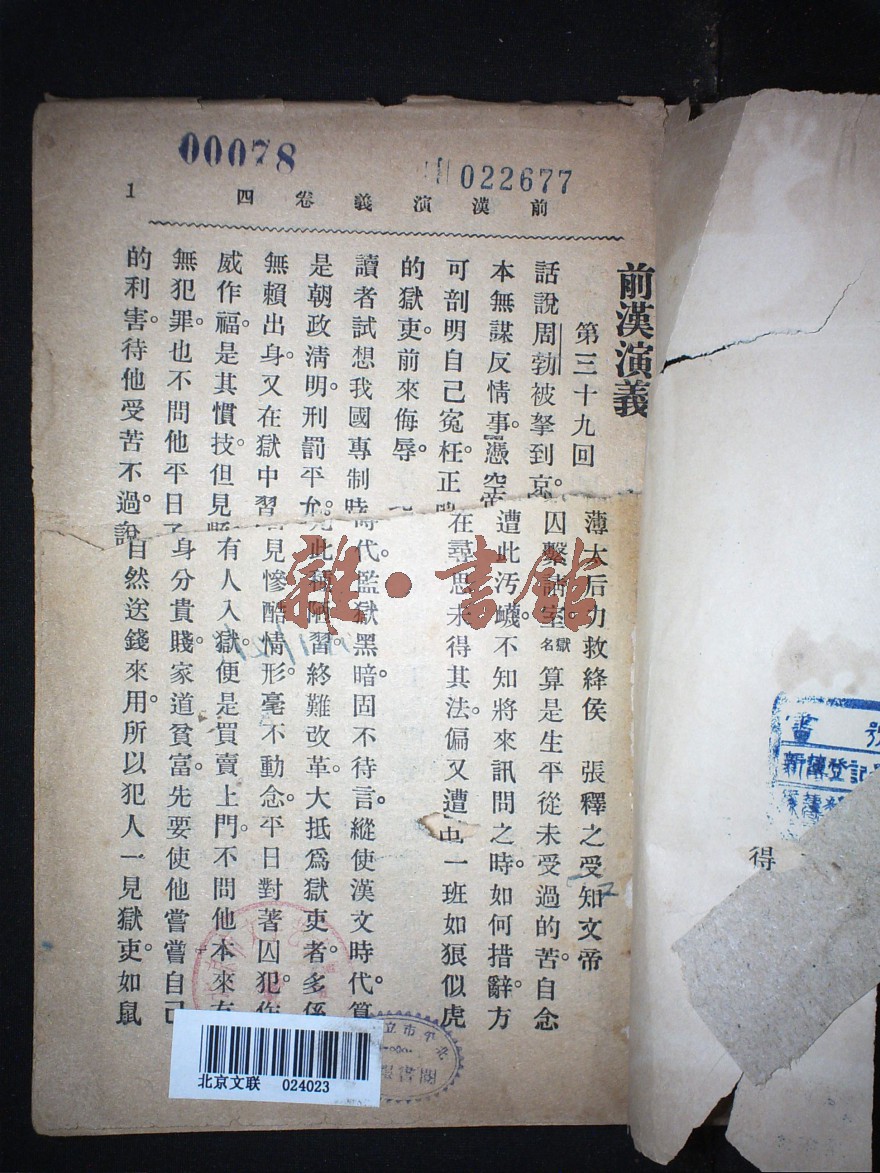 00078
022677
前漢演義卷四
1
前漢演義
第三十九回 薄太后力救絳侯 張釋之受知文帝
話說周勃被拏到京。囚繫詔室。獄名算是生平從未受過的苦。自念
本無謀反情事。憑空遭此汚衊。不知將來訊問之時。如何措辭。方
可剖明自己冤枉。正在尋思未得其法。偏又遭一班如狼似虎
的獄吏。前來侮辱。
讀者試想我國專制時代。監獄黑暗。固不待言。縱使漢文時代。算
是朝政淸明。刑罰平允。此種陋習。終難改革。大抵爲獄吏者。多係
無賴出身。又在獄中習見慘酷情形。毫不動念。平日對著囚犯。作
威作福。是其慣技。但見有人入獄。便是買賣上門。不問他本來有
無犯罪。也不問他平日身分貴賤。家道貧富。先要使他嘗嘗自己
的利害。待他受苦不過。自然送錢來用。所以犯人一見獄吏。如鼠
雜·書館
得
北京文联 024023